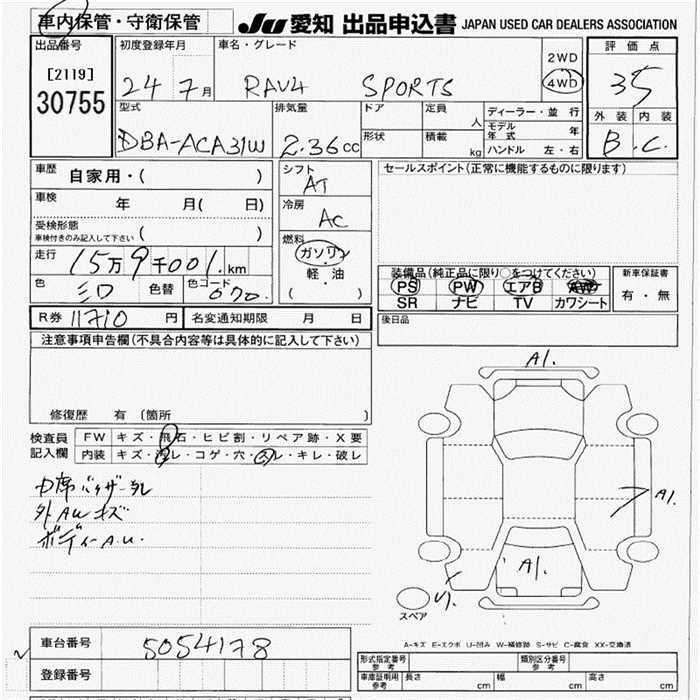 車内保管・守衛保管 JU 愛知 出品申込書 JAPAN USED CAR DEALERS ASSOCIATION
出品番号 初度登録年月 車名・グレード 2WD 評価点
[2119] 24 7月 RAV4 SPORTS 4WD 35
30755 型式 排気量 ドア 定員 人 ディーラー・並行 外装 内装
DBA-ACA31W 2.36cc 形状 積載 kg モデル年式 年 B. C.
ハンドル 左・右
車歴 自家用・( ) シフト AT セールスポイント(正常に機能するものに限ります)
車検 年 月( 日) 冷房 AC
受検形態 車検付きのみ記入して下さい ( )
燃料 ガソリン
走行 15万9千001.km 軽・油
( )
装備品(純正品に限り○をつけてください) 新車保証書
色 色替 色コード 070. PS PW エアB AW 有・無
SR ナビ TV カワシート
R券 11710 円 名変通知期限 月 日 後日品
注意事項申告欄(不具合内容等は具体的に記入して下さい)
A1.
修復歴 有 (箇所 )
検査員 FW キズ・飛石・ヒビ割・リペア跡・X要
記入欄 内装 キズ・汚レ・コゲ・穴・スレ・キレ・破レ
バイザー
外AUキズ A1.
ボディーA.U.
A1.
スペア
A-キズ E-エクボ U-凹み W-補修跡 S-サビ C-腐食 XX-交換済
車台番号 5054178
登録番号
形式指定番号 参考 類別区分番号 参考
車庫証明用 参考 長さ cm 幅 cm 高さ cm